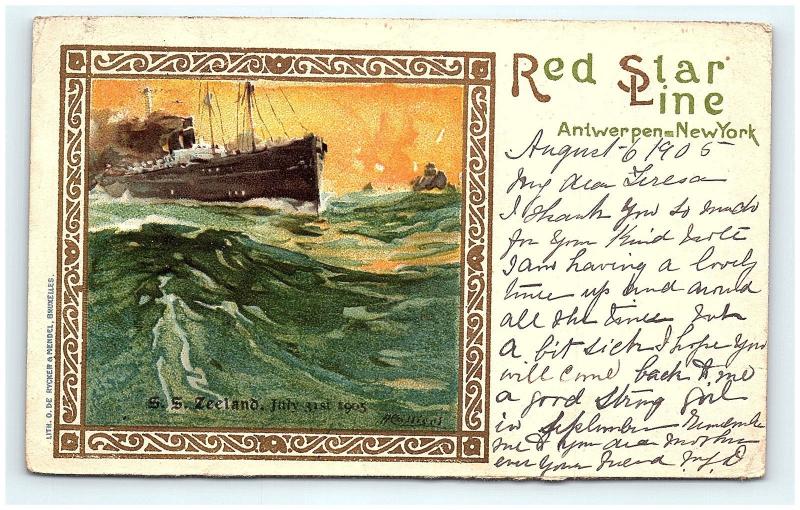 Red Star
Line
Antwerpen=New York
August 6 1905
My dear Teresa
I thank you so much
for your kind note
I am having a lovely
time up and around
all the time not
a bit sick I hope you
will come back to me
a good strong girl
in september Remember
me to your dear mother
ever your friend
S. S. Zeeland. July 31st 1905
LITH. O. DE RYCKER & MENDEL, BRUXELLES.